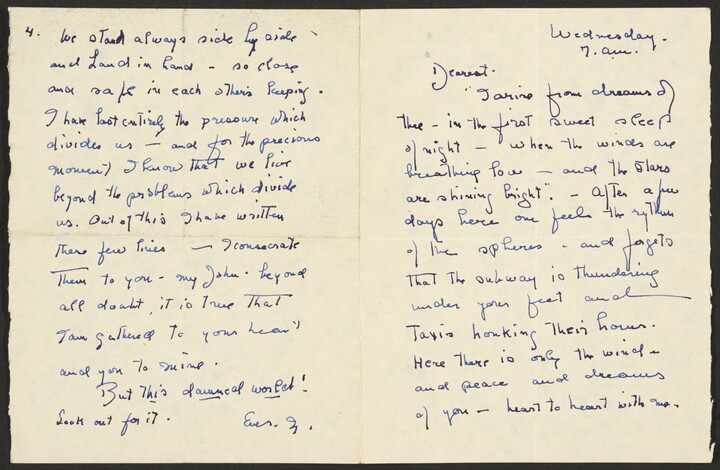 4.
We stand always side by side
and hand in hand - so close
and safe in each others keeping.
I have lost entirely the pressure which
divides us — and for the precious
moment I know that we live
beyond the problems which divide
us. Out of this I have written
these few lines — I consecrate
Them to you - my John. beyond
all doubt, it is true That
I am gathered to your heart
and you to mine.
But this damned world!
Look out for it.
Ever.
Wednesday.
7. a.m.
Dearest.
"I arise from dreams of
thee - in the first sweet sleep
of night - when the winds are
breathing low - and the stars
are shining bright". - After a few
days here one feels the rythm
of the spheres - and forgets
that the subway is thundering
under your feet and
Taxis honking Their horns.
Here there is only the wind -
and peace and dreams
of you — heart to heart with me.